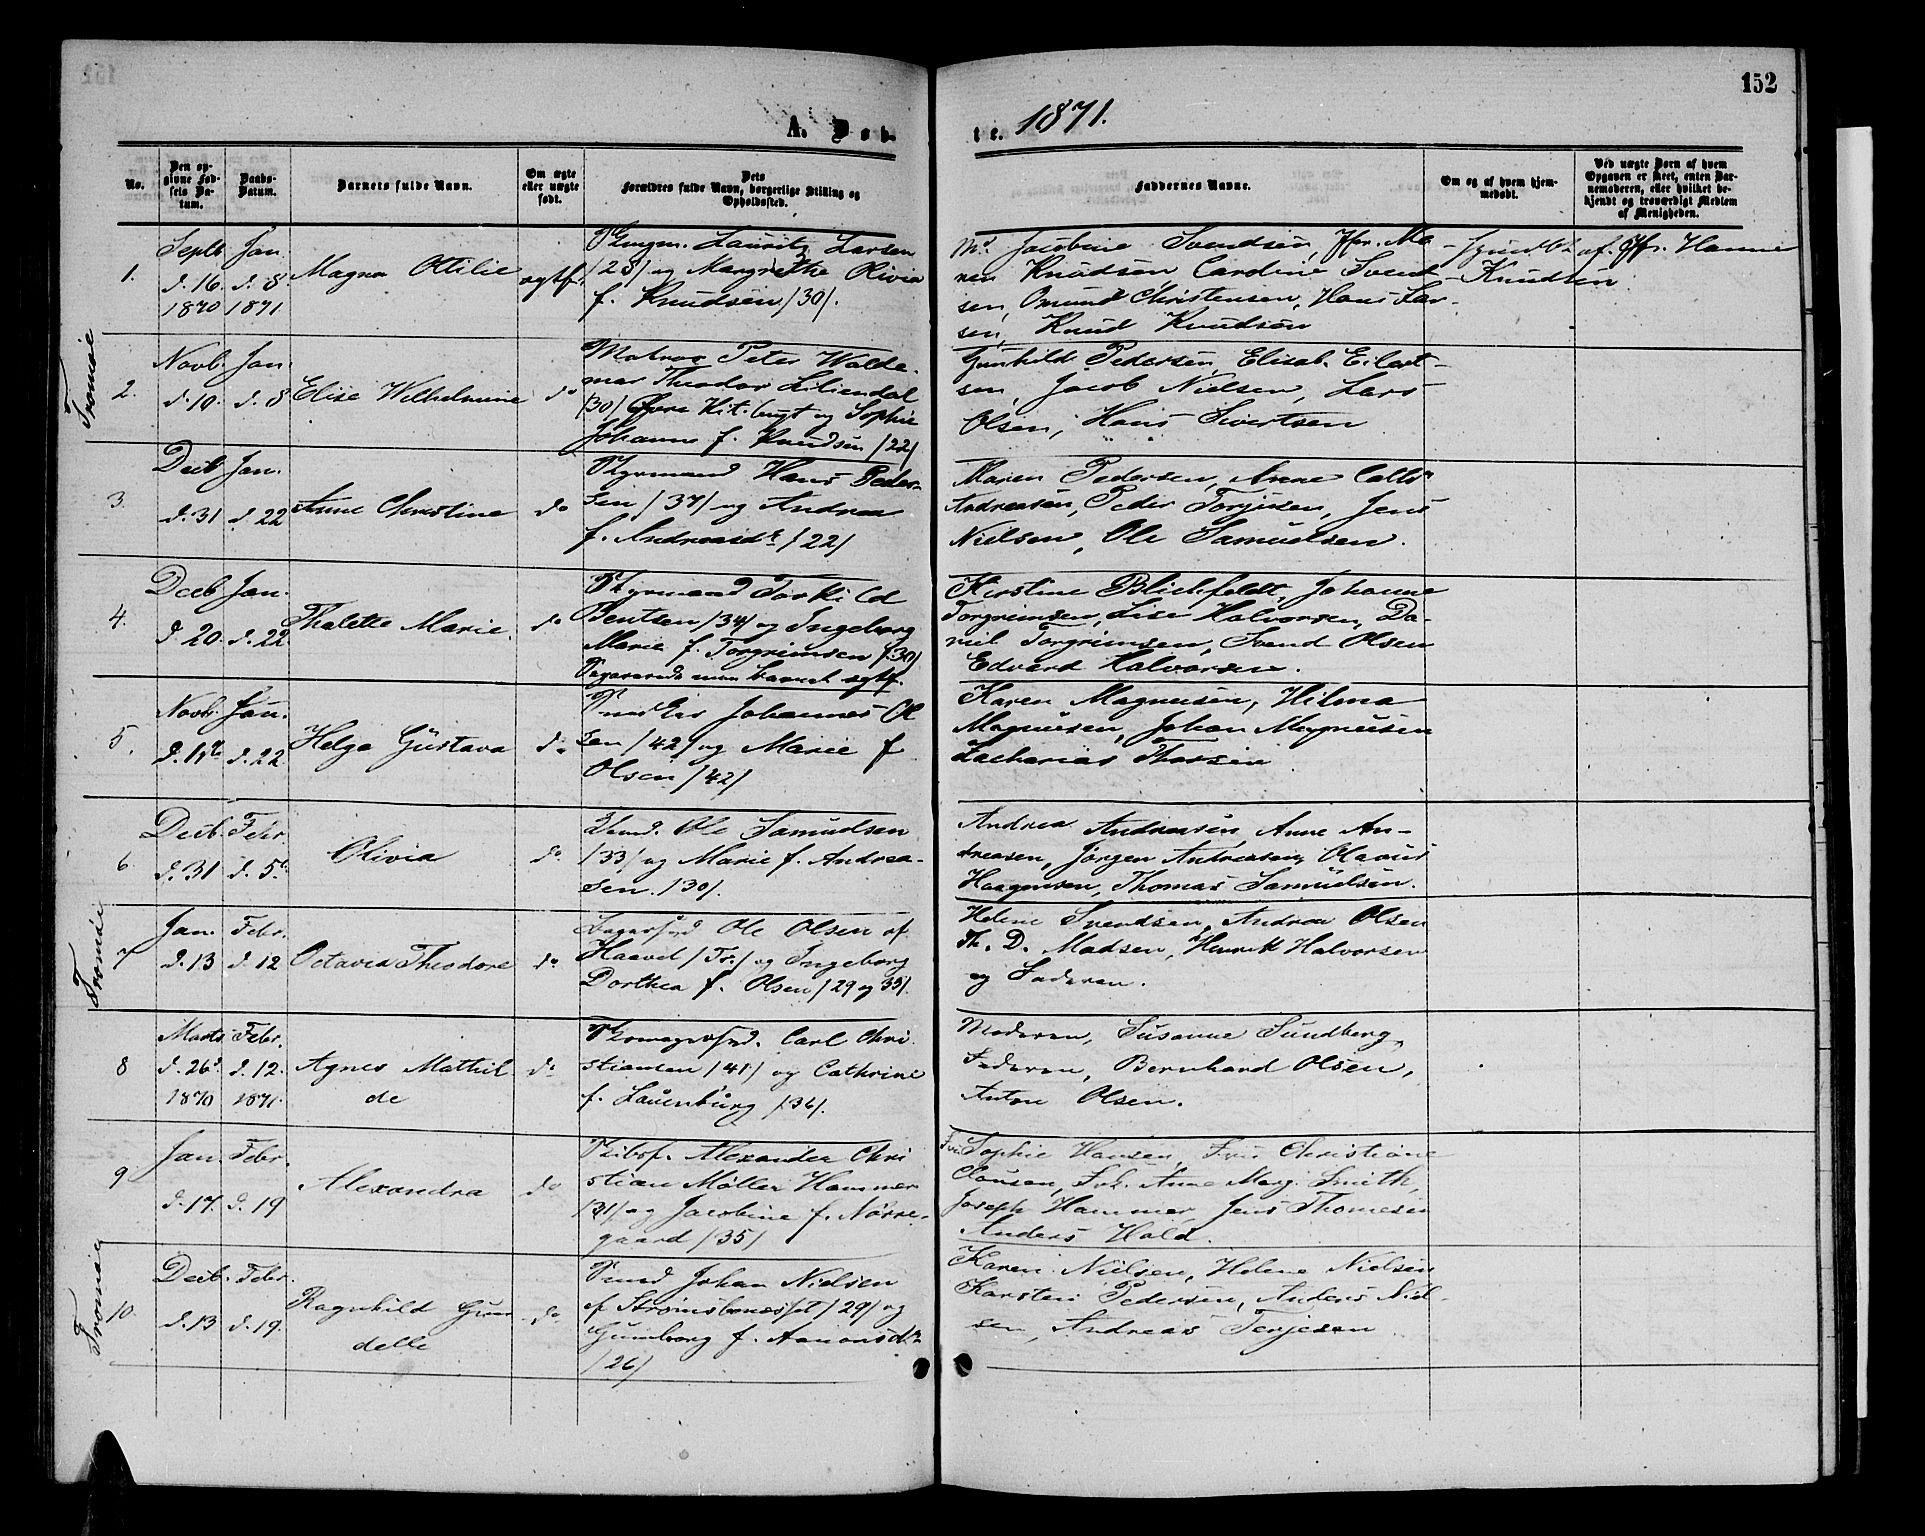 152
A. Døb-
te. 1871.
No.
Den opgivne Fødsels Datum.
Daabs-Datum.
Barnets fulde Navn.
Om ægte eller uægte født.
Dets Forældres fulde Navn, borgerlige Stilling og Opholdssted.
Faddernes Navne.
Om og af hvem hjemmedøbt.
Ved uægte Børn af hvem Opgaven er skeet, enten Barnemoderen, eller hvilket bekjendt og troværdigt Medlem af Menigheden.
1.
Septb. d. 16. 1870
Jan. d. 8. 1871.
Magna Ottilie
ægtf.
Lauritz Larsen
/28/ og Margrethe Olivia
f. Knudsen /30/.
Md. Jacobine Svendsen, Jfr. Ma-
ren Knudsen, Caroline Svend-
sen, Omund Christensen, Hans Lar-
sen, Knud Knudsen
af Jfr. Hanne
Knudsen.
Tromøe
2.
Novb. d. 10.
Jan. d. 8
Elise Wilhelmine
do
Matros Peter Walde-
mar Theodor Liliendal
/30/ Øvre Kit.bugt og Sophie
Johanne f. Knudsen /22/
Gunhild Pedersen, Elisab. Eilert-
sen, Jacob Nielsen, Lars
Olsen, Hans Sivertsen
3.
Decb. d. 31
Jan. d. 22
Anne Christine
do
Styrmand Hans Peder-
sen /37/ og Andrea
f. Andreasdr. /22/
Maren Pedersen, Anne
Andreasen, Peder Torjusen, Jens
Nielsen, Ole Samuelsen.
4.
Decb. d. 20.
Jan. d. 22.
Thalette Marie.
do
Styrmand Torkild
Bentsen /34/ og Ingeborg
Marie f. Torgrimsen /30/
Kirstine Blichfeldt, Johanne
Torgrimsen, Lise Halvorsen, Da-
niel Torgrimsen, Svend Olsen
Edvard Halvorsen.
5.
Novb.
Jan. d. 22.
Helga Gustava
do
Johannes Ol
sen /42/ og Marie f.
Olsen /42/
Karen Magnusen, Hilma
Magnusen, Johan Magnusen
Zacharias Thorsen
6
Decb. d. 31
Febr. d. 5te
Olivia
do.
Ole Samuelsen
/33/ og Marie f. Andrea-
sen. /30/.
Andrea Andreasen, Anne An-
dreasen, Jørgen Andreasen, Olaus
Haagensen, Thomas Samuelsen.
Tromøe
7
Jan. d. 13
Febr. d. 12
Octavia Theodore
do
Ole Olsen af
Haavet /Tr./ og Ingeborg
Dorthea f. Olsen /29 og 33/.
Helene Svendsen, Andrea Olsen
Th. D. Madsen, Henrik Halvorsen
og Faderen.
8
Marts d. 26de 1870
Febr. d. 12. 1871.
Agnes Mathil
de
do
Carl Chri
stiansen /41/ og Cathrine
f. Lauenburg /36/.
Moderen, Susanne Sundberg,
Faderen, Bernhard Olsen,
Anton Olsen.
9
Jan. d. 17.
Febr. d. 19
Alexandra
do
Skibsf. Alexander Chri
stian Møller Hammer
/31/ og Jacobine f. Nørre-
gaard /35/
Fru Sophie Hansen, Fru Christiane
Clausen, Frk. Anne Marg. Smith,
Joseph Hammer, Jens Thomesen
Anders Hold.
Tromøe
10.
Decb. d. 13
Febr. d. 19.
Ragnhild Gun
delle
do
Johan Nielsen
af Strømsbonæsset /29/ og
Gunborg f. Aanonsdr.
/26/
Karen Nielsen, Helene Nielsen
Karsten Pedersen, Anders Niel-
sen, Andreas Terjesen